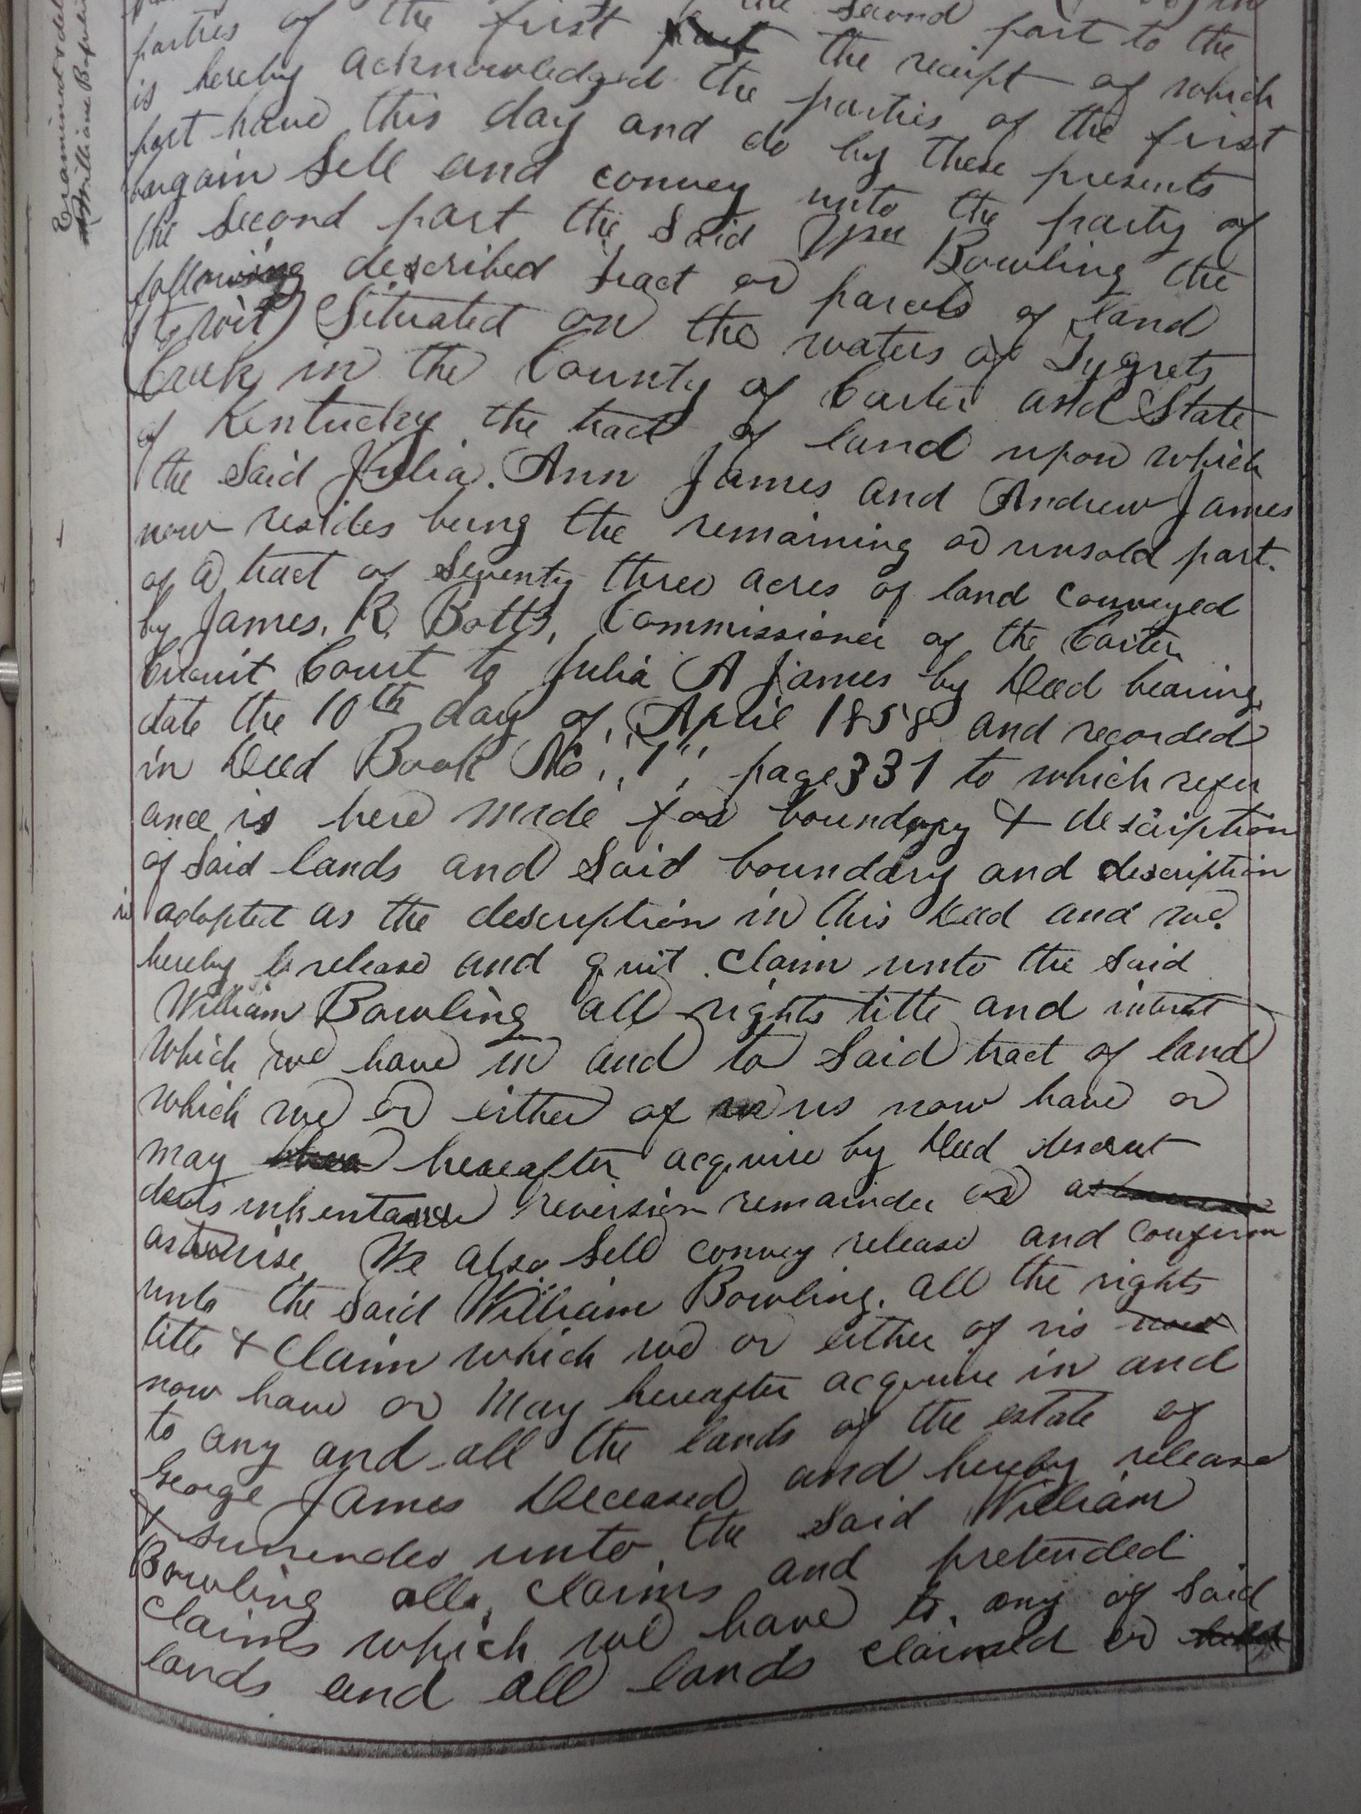 the second part to the
parties of the first part the receipt of which
is hereby acknowledged the parties of the first
part have this day and do by these presents
bargain Sell and convey unto the party of
the Second part the Said Wm Bowling the
following described tract or parcels of land
(to wit) Situated on the waters of Tygrets
Creek in the County of Carter and State
of Kentucky the tract of land upon which
the Said Julia. Ann James and Andrew James
now resides being the remaining or unsold part.
of a tract of Seventy three acres of land conveyed
by James. R. Botts, Commissioner of the Carter
Circuit Court to Julia A James by Deed bearing
date the 10th day of April 1858 and recorded
in Deed Book No. "1", page 331 to which refer
ance is here made for boundary & description
of Said lands and Said boundary and description
is adopted as the description in this Deed and we
hereby release and quit claim unto the Said
William Bowling all rights title and interest
which we have in and to Said tract of land
which we or either of us now have or
may hereafter acquire by Deed descent
devis inheritance reversion remainder or
astwise. We also Sell convey release and confirm
unto the Said William Bowling. all the rights
title & Claim which we or either of us
now have or may hereafter acquire in and
to any and all the lands of the estate of
George James Deceased and hereby release
& surrender unto the Said William
Bowling all claims and pretended
claims which we have to any of Said
lands and all lands claimed or
Examined & del
William Bowlin